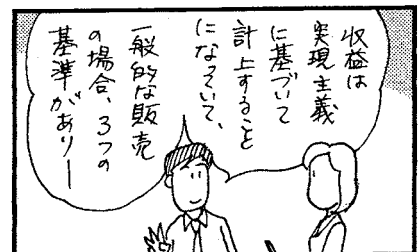 収益は
実現主義
に基づいて
計上すること
になっていて、
一般的な販売
の場合、3つの
基準があり―